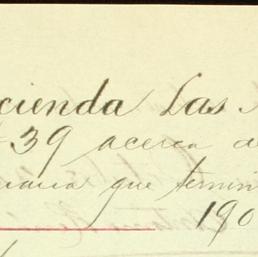 cienda Las
39 acerca d
que termin
190